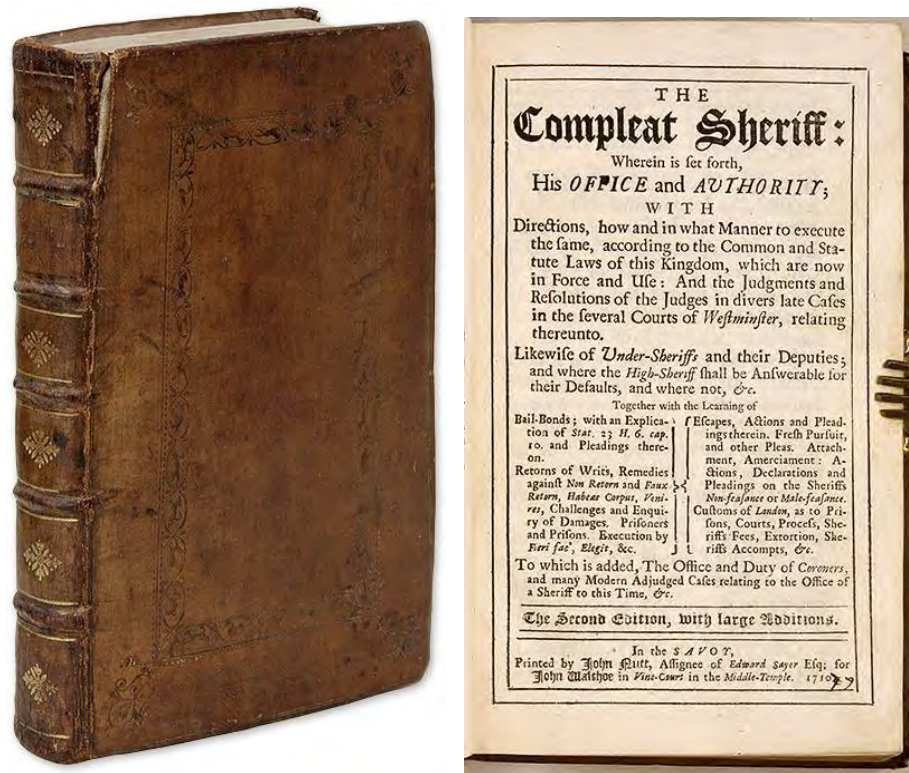 THE
Compleat Sheriff:
Wherein is ſet forth,
His OFFICE and AUTHORITY;
WITH
Directions, how and in what Manner to execute
the ſame, according to the Common and Sta-
tute Laws of this Kingdom, which are now
in Force and Uſe: And the Judgments and
Reſolutions of the Judges in divers late Caſes
in the ſeveral Courts of Weſtminſter, relating
thereunto.
Likewiſe of Under-Sheriffs and their Deputies;
and where the High-Sheriff ſhall be Anſwerable for
their Defaults, and where not, &c.
Together with the Learning of
Bail-Bonds; with an Explica-
tion of Stat. 23 H. 6. cap.
10. and Pleadings there-
on.
Retorns of Writs, Remedies
againſt Non Retorn and Faux
Retorn, Habeas Corpus, Veni-
res, Challenges and Enqui-
ry of Damages. Priſoners
and Priſons. Execution by
Fieri fac', Elegit, &c.
Eſcapes, Actions and Plead-
ings therein. Freſh Purſuit,
and other Pleas. Attach-
ment, Amerciament: A-
ctions, Declarations and
Pleadings on the Sheriffs
Non-feaſance or Male-feaſance.
Cuſtoms of London, as to Pri-
ſons, Courts, Proceſs, She-
riffs Fees, Extortion, She-
riffs Accompts, &c.
To which is added, The Office and Duty of Coroners,
and many Modern Adjudged Caſes relating to the Office of
a Sheriff to this Time, &c.
The Second Edition, with large Additions.
In the SAVOY,
Printed by John Nutt, Aſſignee of Edward Sayer Eſq; for
John Walthoe in Vine-Court in the Middle-Temple. 1710